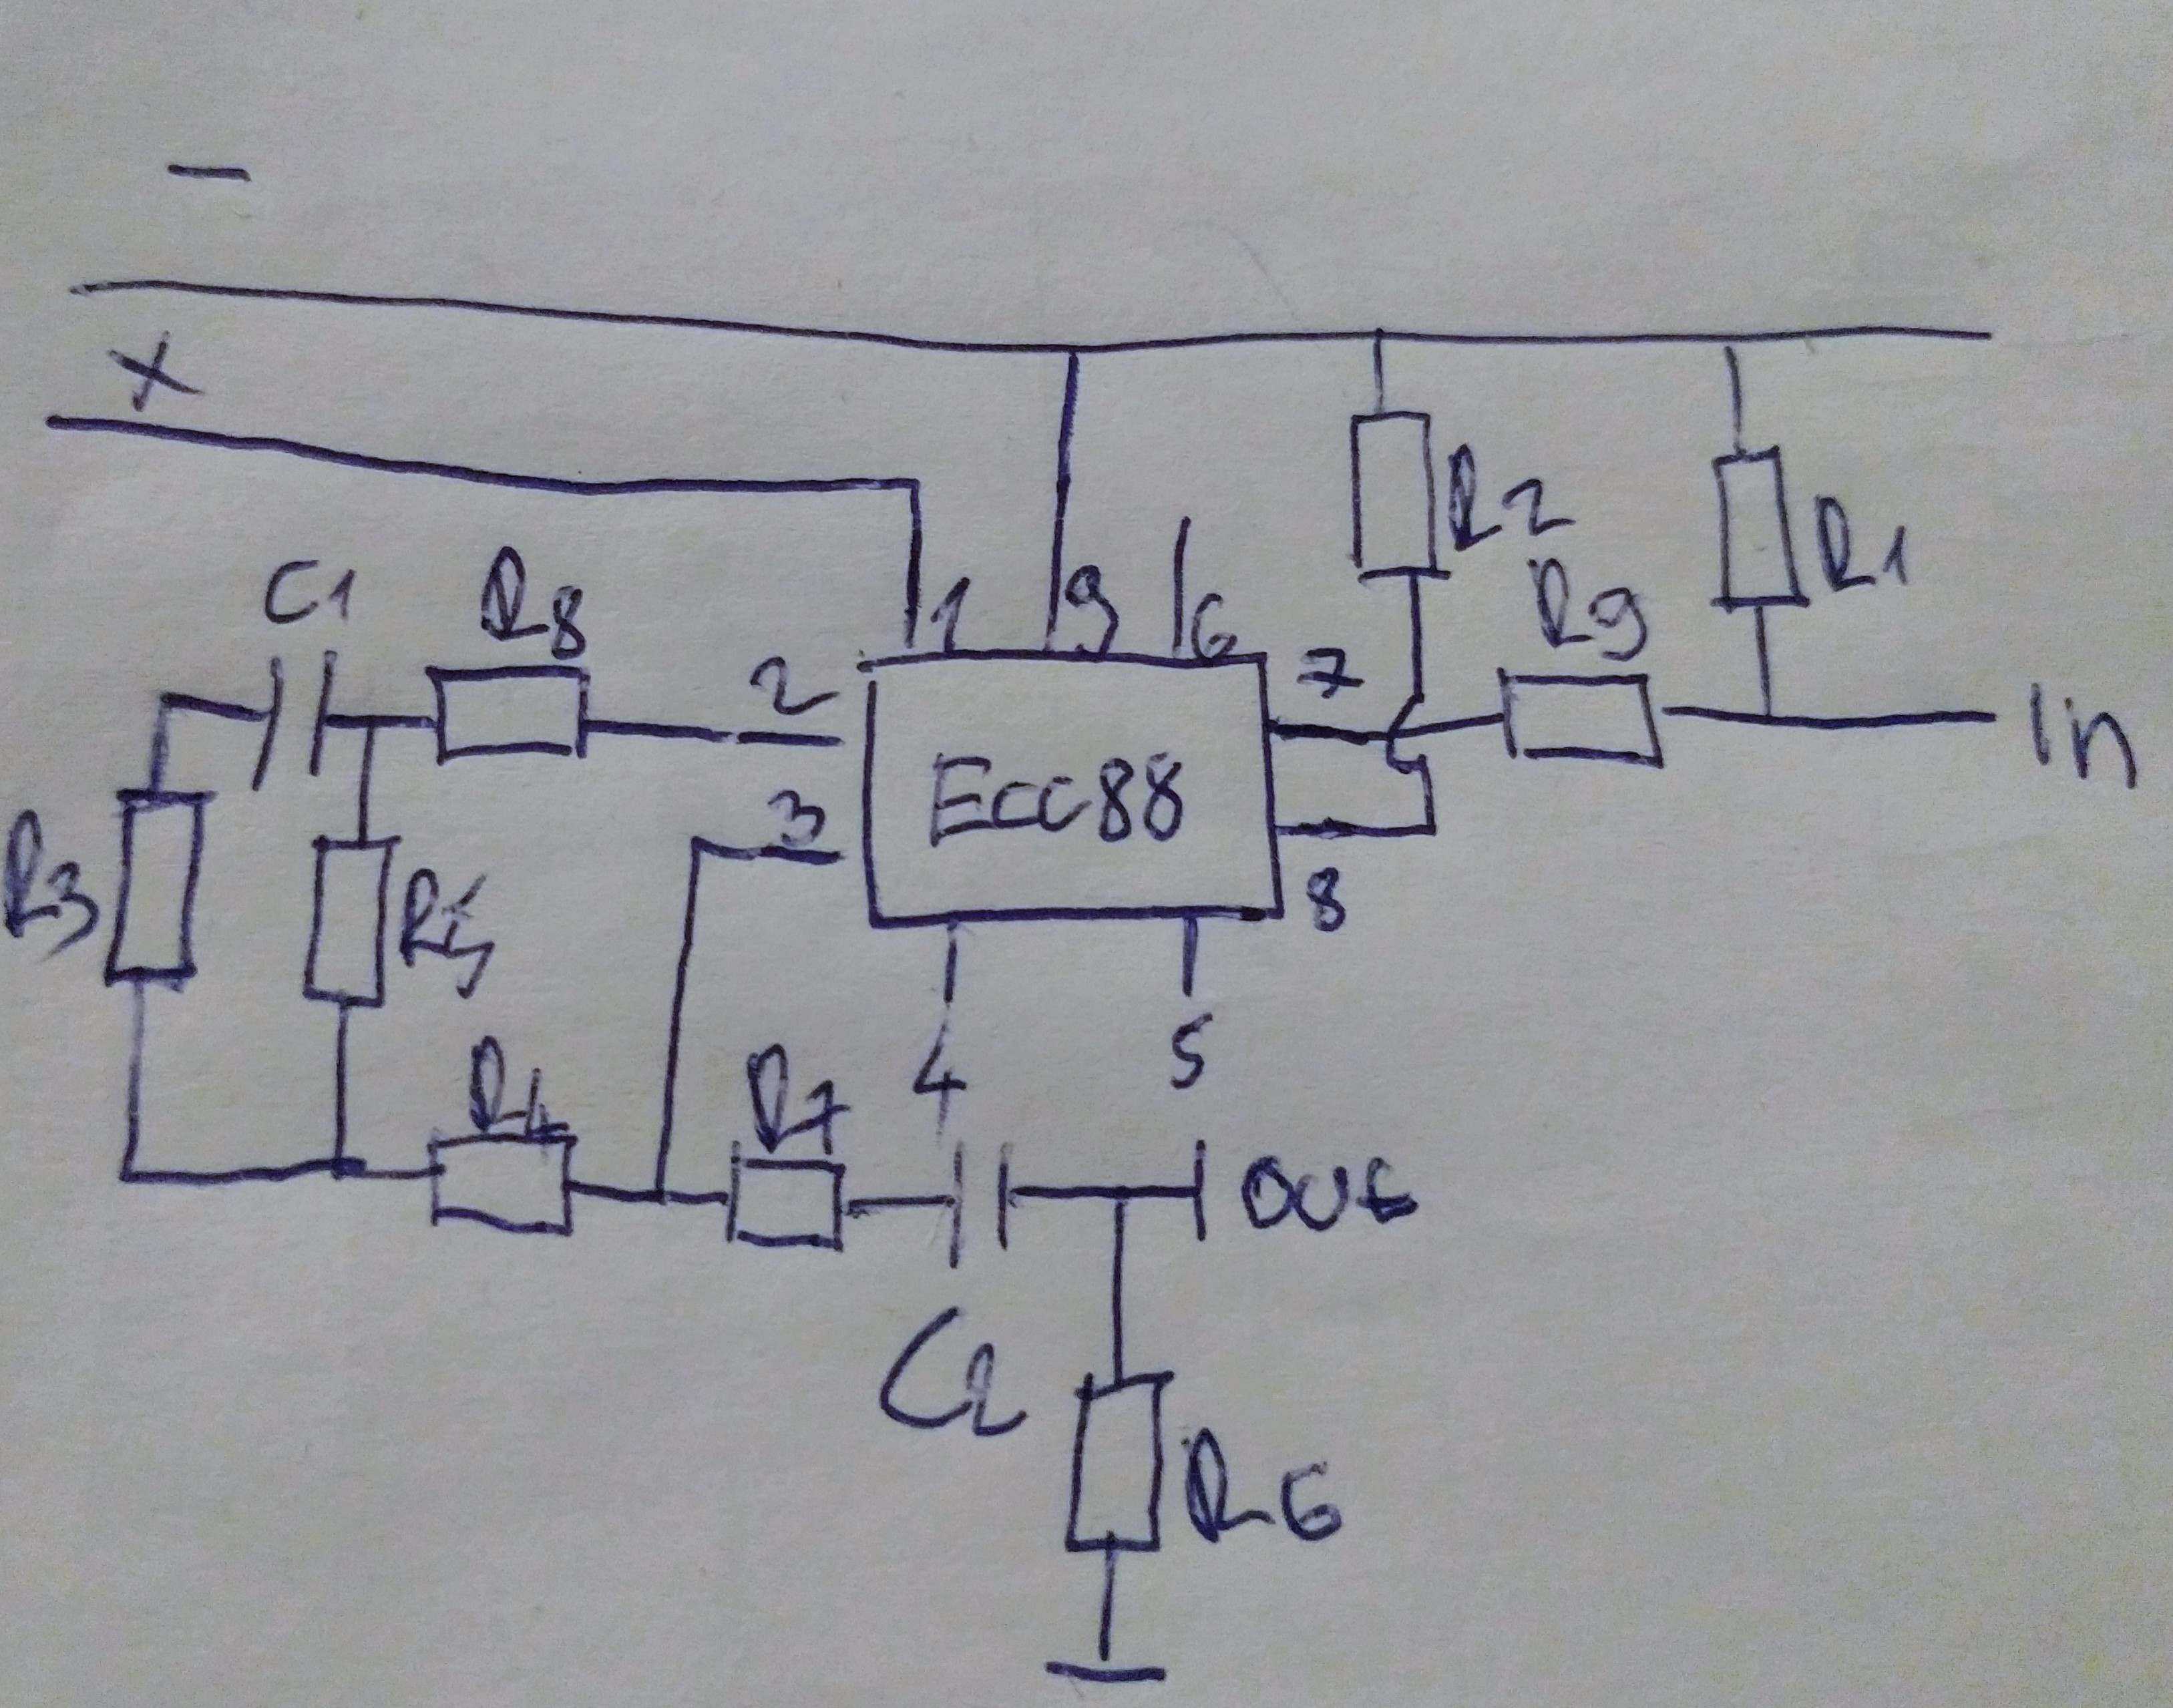 -
+
R2
C1
R8
R9
R1
1
9
6
2
7
In
3
Ecc88
R3
R5
8
R4
R7
4
5
Out
C2
R6